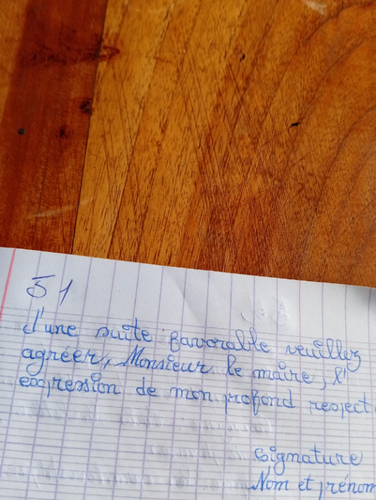 51
d'une suite favorable veuillez
agréer, Monsieur le maire, l'
expression de mon profond respect.
signature
Nom et prénom